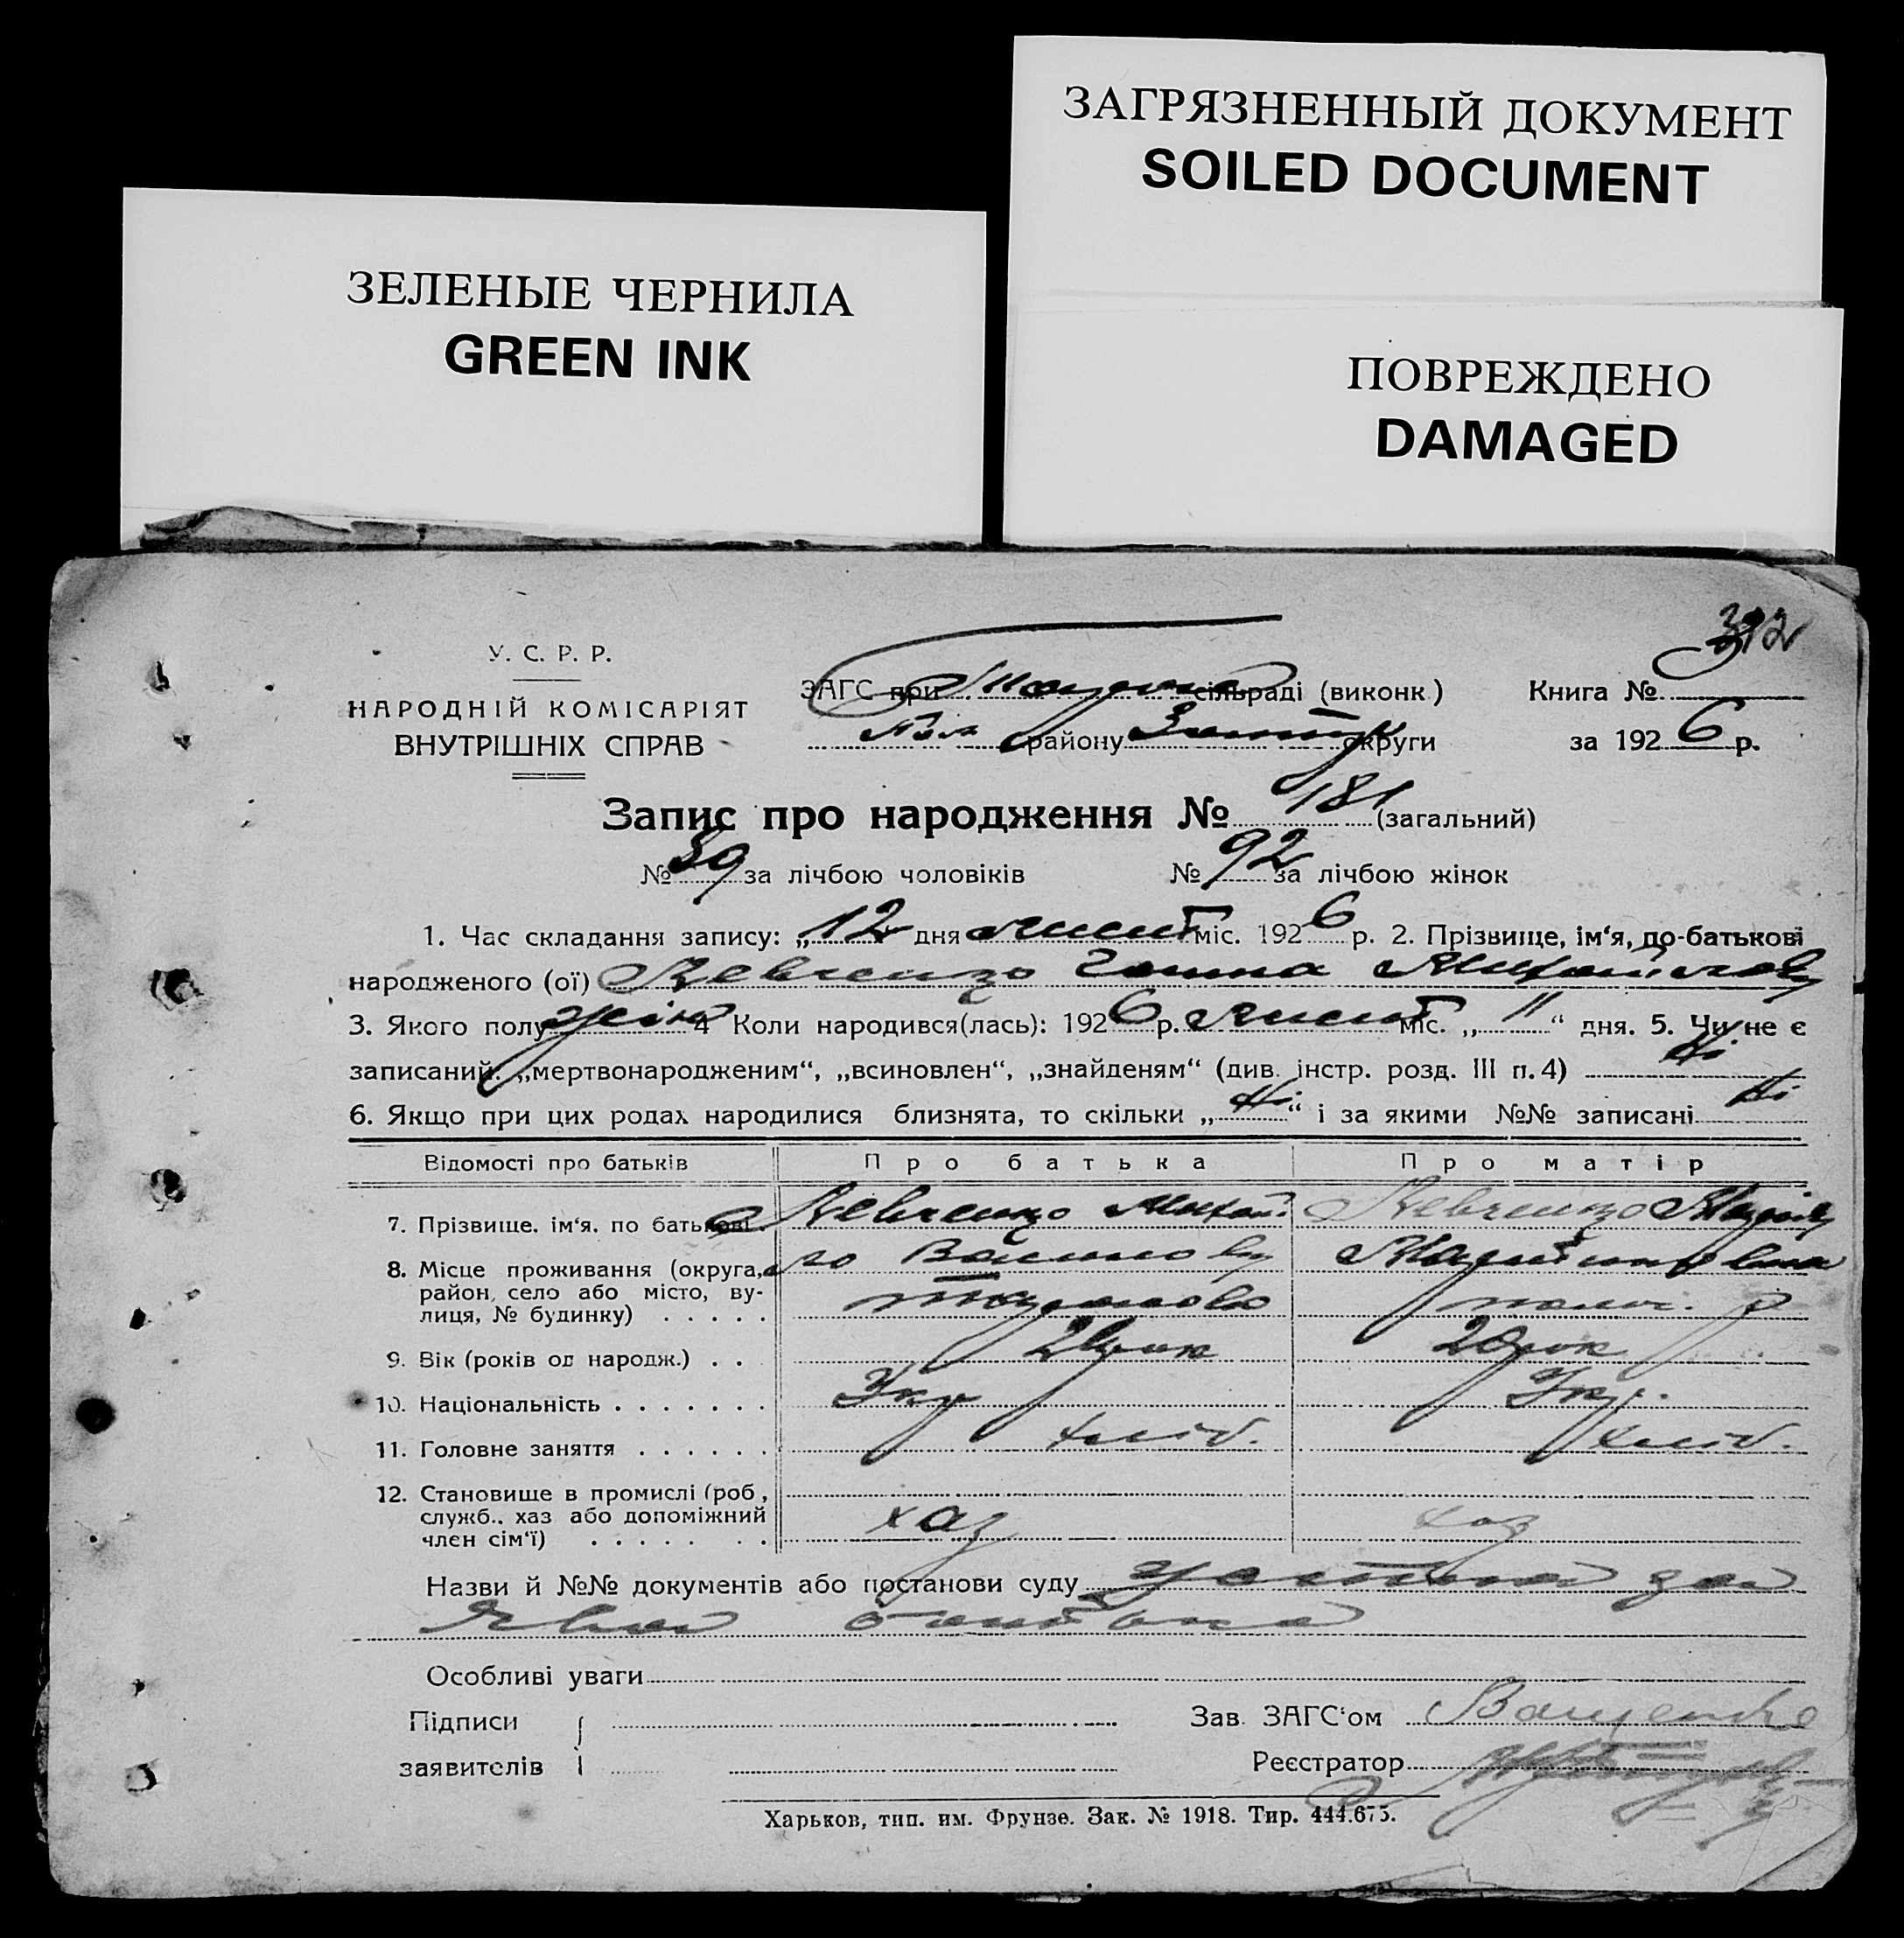 ЗАГРЯЗНЕННЫЙ ДОКУМЕНТ
SOILED DOCUMENT
ЗЕЛЕНЫЕ ЧЕРНИЛА
GREEN INK
ПОВРЕЖДЕНО
DAMAGED
У. С. Р. Р.
НАРОДНІЙ КОМІСАРІЯТ
ВНУТРІШНІХ СПРАВ
ЗАГС при сільраді (виконк.)
району Золот округи
Книга №
за 1926 р.
Запис про народження № 181 (загальний)
№ 89 за лічбою чоловіків № 92 за лічбою жінок
1. Час складання запису: „12 дня лист міс. 1926 р. 2. Прізвище, ім‘я, по-батькові
народженого (ої) Левченко Ганна Михайлов
3. Якого полу жіно 4 Коли народився(лась): 1926 р. лист міс. „11“ дня. 5. Чи не є
записаний: „мертвонародженим“, „всиновлен“, „знайденям“ (див. інстр. розд. III п. 4) Ні
6. Якщо при цих родах народилися близнята, то скільки „Ні“ і за якими №№ записані Ні
Відомості про батьків Про батька Про матір
7. Прізвище, ім‘я, по батькові. Левченко Михай. Левченко Марія
8. Місце проживання (округа, ло Васильов Мартинівна
район, село або місто, ву-
лиця, № будинку)
9. Вік (років од народж.) рок 20 рок
10. Національність Укр Укр.
11. Головне заняття хліб. хліб.
12. Становище в промислі (роб.,
служб., хаз або допоміжний хаз хаз
член сім‘ї)
Назви й №№ документів або постанови суду устна за
ява батька
Особливі уваги
Підписи
заявителів
Зав. ЗАГС‘ом Ващенко
Реєстратор
Харьков, тип. им. Фрунзе. Зак. № 1918. Тир. 444.675.